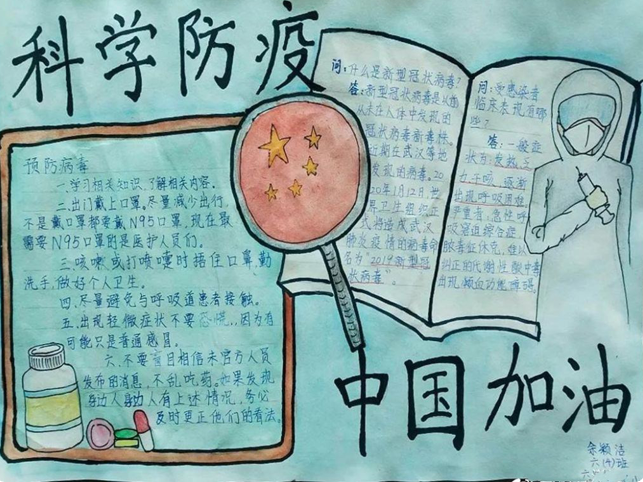 科学防疫
预防病毒
一.学习相关知识,了解相关内容。
二.出门戴上口罩。尽量减少出行。
不是戴口罩都要戴N95口罩,现在最
需要N95口罩的是医护人员们。
三.咳嗽或打喷嚏时捂住口鼻,勤
洗手,做好个人卫生。
四.尽量避免与呼吸道患者接触。
五.出现轻微症状不要恐慌,因为有
可能只是普通感冒。
六.不要盲目相信未官方人员
发布的消息,不乱吃药。如果发现
身边人身边人有上述情况,务必
及时更正他们的看法
问:什么是新型冠状病毒?
答:新型冠状病毒是以前
从未在人体中发现的
冠状病毒新毒株。
近期在武汉等地
发现的病毒。20
20年1月12日世
界卫生组织正
式将造成武汉
肺炎疫情的病毒命
名为"2019新型冠
状病毒"。
问:受感染者
临床表现有哪
些?
答:一般症
状为:发热、乏
力、干咳、逐渐
出现呼吸困难
严重者:急性呼
吸窘迫综合症
脓毒症休克,难以
纠正的代谢性酸中毒
出现凝血功能障碍
中国加油
六(4)班